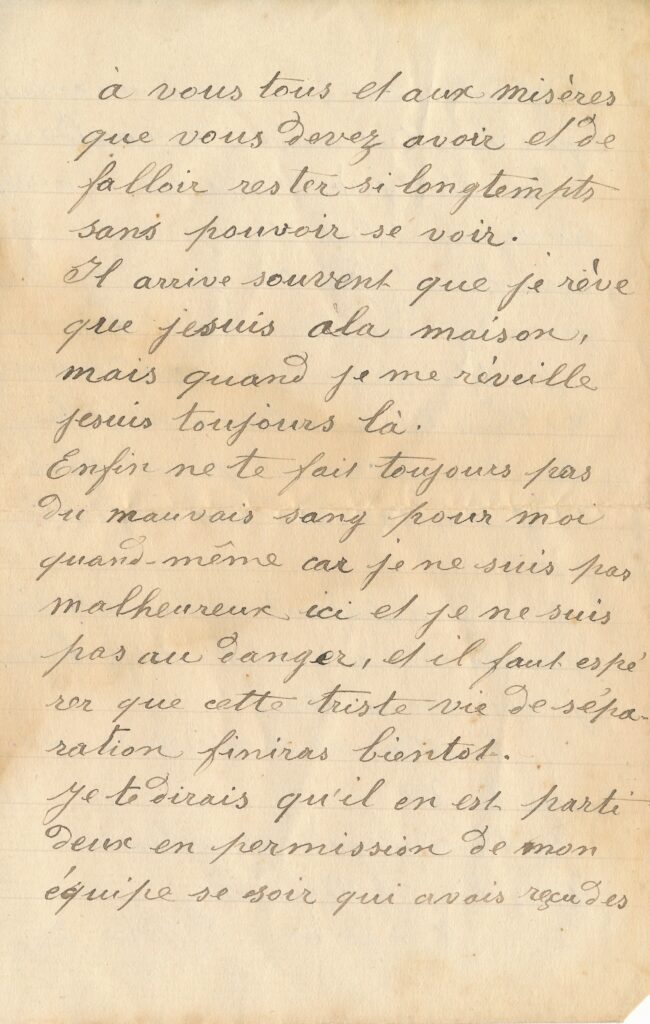 à vous tous et aux misères
que vous devez avoir et de
falloir rester si longtempts
sans pouvoir se voir.
Il arrive souvent que je rêve
que jesuis àla maison,
mais quand je me réveille
jesuis toujours là.
Enfin ne te fait toujours pas
du mauvais sang pour moi
quand-même car je ne suis pas
malheureux ici et je ne suis
pas au danger, et il faut espé
rer que cette triste vie de sépa-
ration finiras bientot.
Je te dirais qu'il en est parti
deux en permission de mon
équipe se soir qui avais reçu des